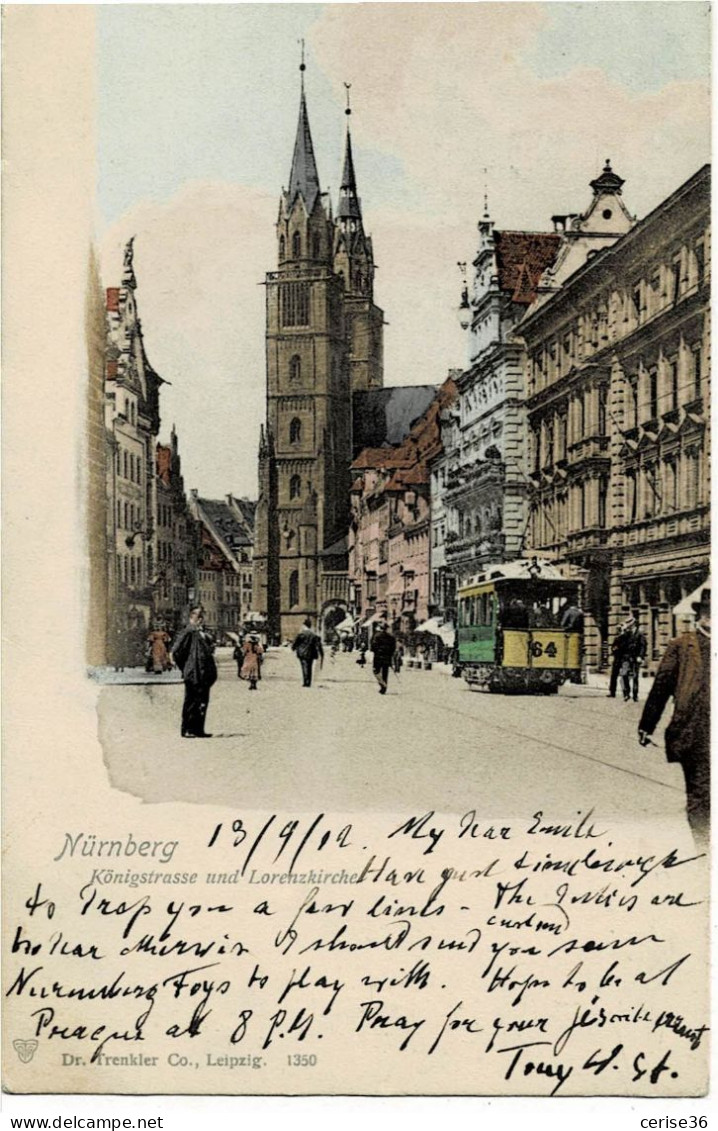 64
Nürnberg
13/9/02 My dear Emile
Königstrasse und Lorenzkirche
Have just time enough
to drop you a few lines - The are
custard
to dear I should send you some
Nuremberg Toys to play with. Hope to be at
Prague at 8 P.M. Pray for your Jesuite parent
Tony
Dr. Trenkler Co., Leipzig. 1350
cerise36